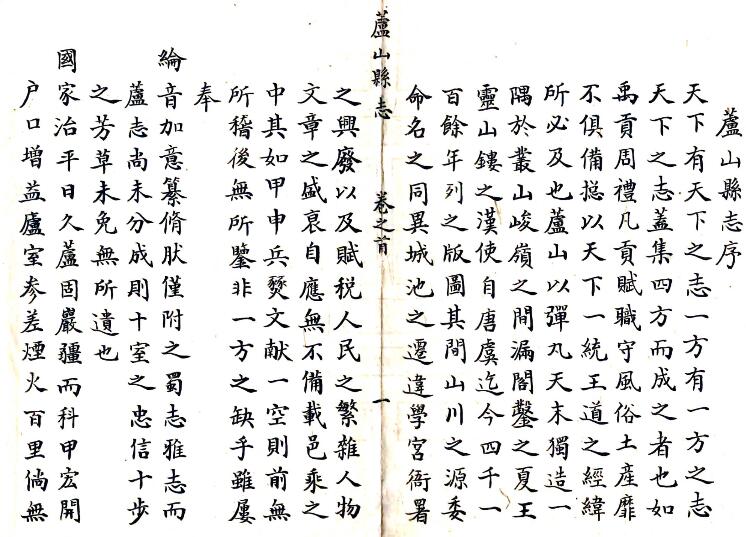 蘆山縣志序
天下有天下之志一方有一方之志
天下之志蓋集四方而成之者也如
禹貢周禮凡貢賦職守風俗土產靡
不俱備揔以天下一統王道之經緯
所必及也蘆山以彈丸天末獨造一
隅於叢山峻嶺之間漏閣鑿之夏王
靈山鏤之漢使自唐虞迄今四千一
百餘年列之版圖其間山川之源委
命名之同異城池之遷違學宮衙署
蘆山縣志 卷之首 一
之興廢以及賦稅人民之繁雜人物
文章之盛衰自應無不備載邑乘之
中其如甲申兵燹文献一空則前無
所稽後無所鑒非一方之缺乎雖屢
奉
綸音加意纂脩肰僅附之蜀志雅志而
蘆志尚未分成則十室之忠信十步
之芳草未免無所遺也
國家治平日久蘆固嚴疆而科甲宏開
户口增益廬室参差煙火百里倘無